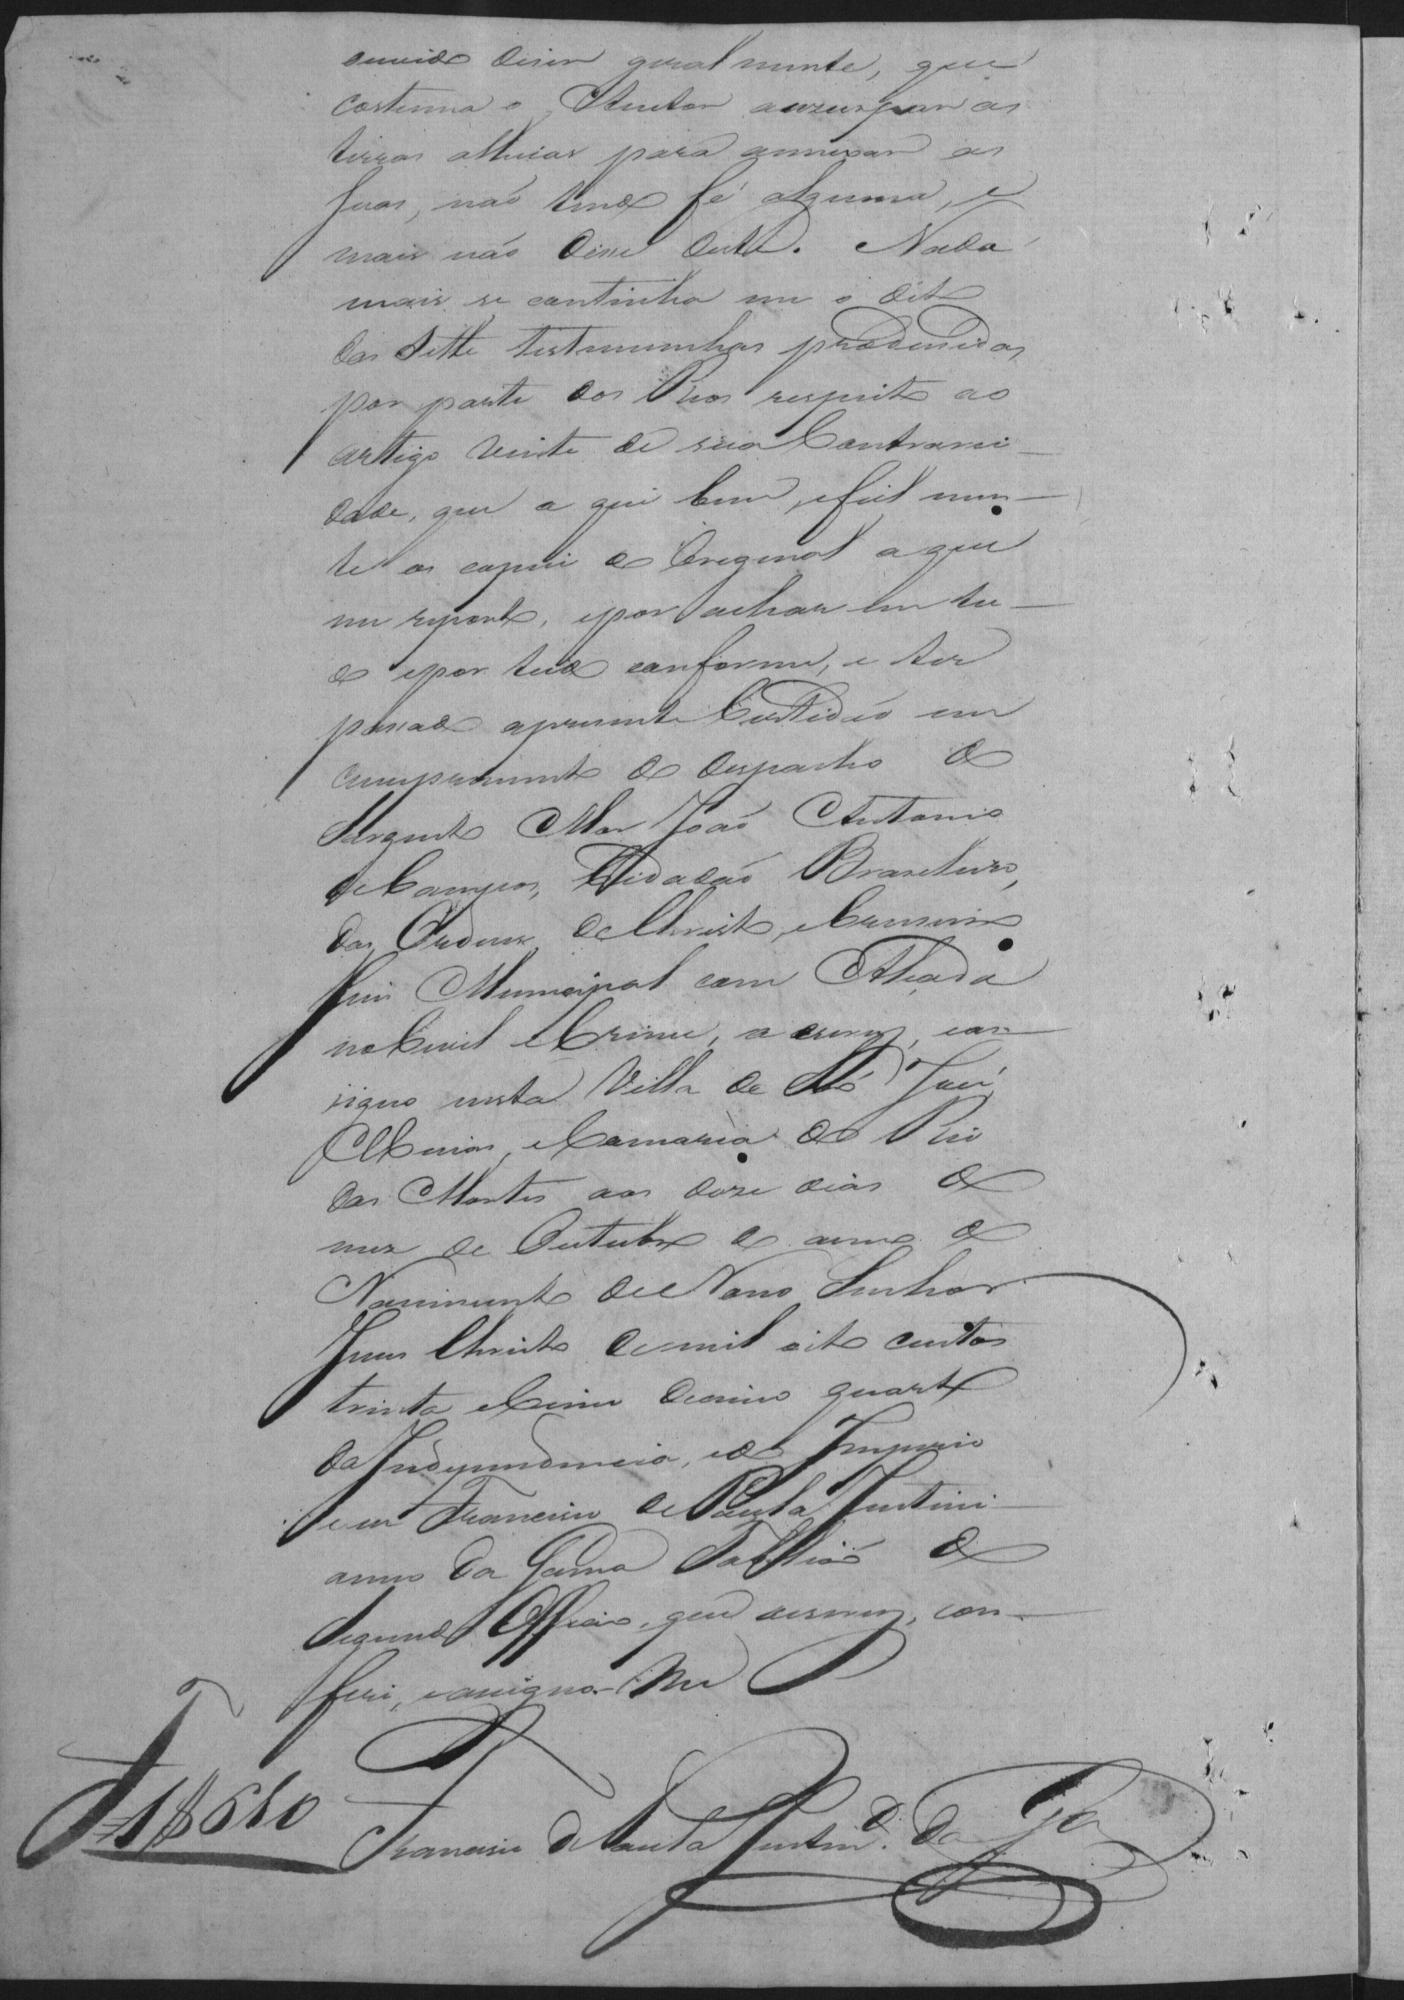 ouvido diser geralmente, que
costuma o Autor auzurpar as
terras alheias para annexar as
suas, não tendo fé alguma, e
mais não dise deste. Nada
mais se continha em o dito
das Sette testemunhas produsidas
por parte dos Reos respeito ao
artigo vinte de sua Contrarie-
dade, que a qui bem, e fiel men-
te os copiei do Original a que
me reporto, e por achar em tu-
do e por tudo conforme, e ter
pasado a presente Certidão em
cumprimento do despacho do
Sargento Mor João Antonio
de Campos, Cidadão Brasileiro,
das Ordens de Christo, e Cruzeiro
Juis Municipal com Alçada
no Civel e Crime, a escrevy, con-
signo nesta Villa de São José,
Minas, e Comarca do Rio
das Mortes aos doze dias do
mez de Outubro do anno do
Nascimento de Noso Senhor
Jesus Christo de mil oito centos
trinta e Cinco decimo quarto
da Independencia, e do Imperio
e eu Francisco de Paula Justini-
anno da Gama Tabelião do
Segundo Officio, que escrevy, con-
feri, e asigno. Me
1$680
Francisco de Paula Justin.º da Ga